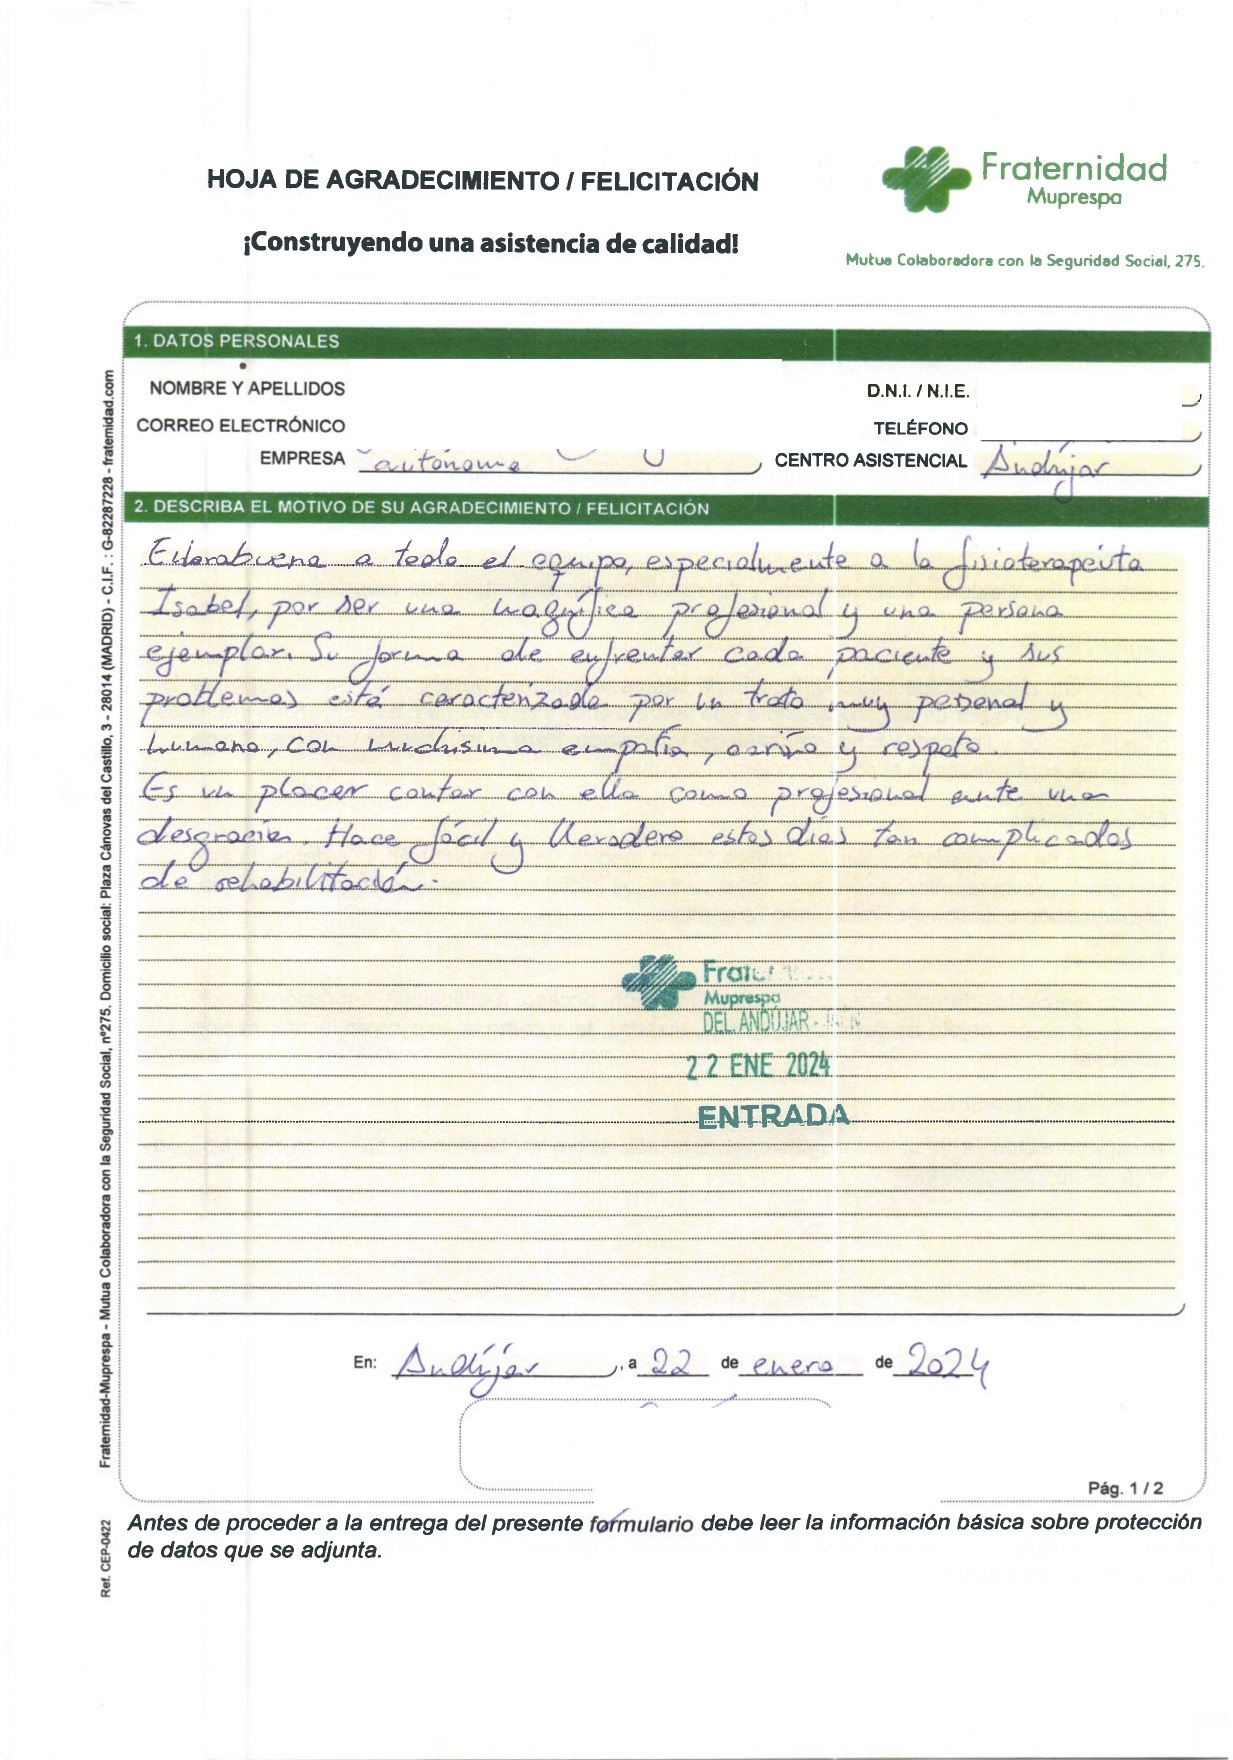 HOJA DE AGRADECIMIENTO / FELICITACIÓN
¡Construyendo una asistencia de calidad!
Fraternidad
Muprespa
Mutua Colaboradora con la Seguridad Social, 275.
1. DATOS PERSONALES
NOMBRE Y APELLIDOS
D.N.I. / N.I.E.
CORREO ELECTRÓNICO
TELÉFONO
EMPRESA autónoma
CENTRO ASISTENCIAL Andújar
2. DESCRIBA EL MOTIVO DE SU AGRADECIMIENTO / FELICITACIÓN
Enhorabuena a todo el equipo, especialmente a la fisioterapeuta
Isabel, por ser una magnífica profesional y una persona
ejemplar. Su forma de enfrentar cada paciente y sus
problemas está caracterizada por un trato muy personal y
humano, con muchísima empatía, cariño y respeto.
Es un placer contar con ella como profesional ante una
desgracia. Hace fácil y llevadero estos días tan complicados
de rehabilitación.
Muprespa
DEL ANDÚJAR -
22 ENE 2024
ENTRADA
En: Andújar, a 22 de enero de 2024
Pág. 1 / 2
Antes de proceder a la entrega del presente formulario debe leer la información básica sobre protección
de datos que se adjunta.
Fraternidad-Muprespa - Mutua Colaboradora con la Seguridad Social, nº275. Domicilio social: Plaza Cánovas del Castillo, 3 - 28014 (MADRID) - C.I.F. : G-82287228 - fraternidad.com
Ref. CEP-0422